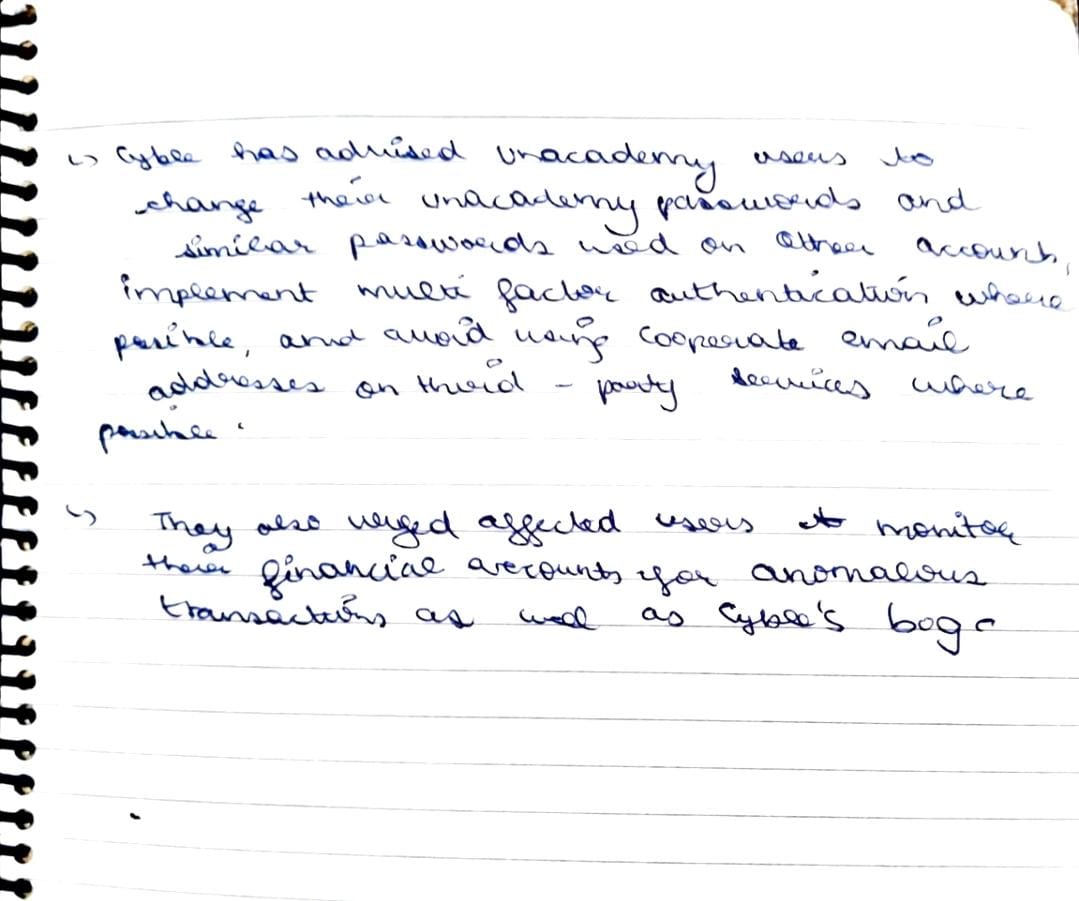 ↳ Cyble has advised unacademy users to
change their unacademy passwords and
similar passwords used on other accounts,
implement multi factor authentication where
posible, and avoid using cooperate email
addresses on third - party services where
possible.
↳ They also urged affected users to monitor
their financial accounts for anomalous
transactions as well as Cyble's bog.